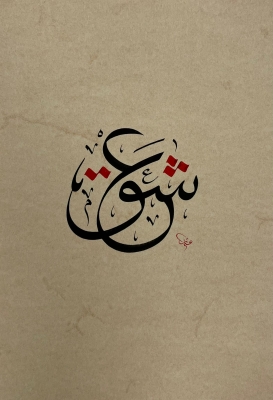 شوق